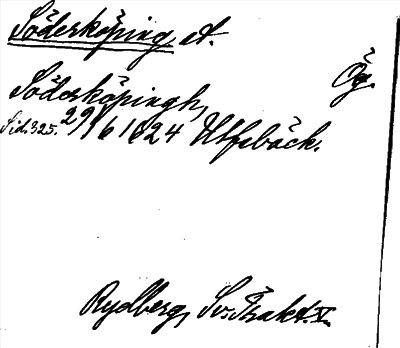 Söderköping, st.
Ög.
Söderköpingh,
Sid. 325. 29/6 1624 Utfsbäck.
Rydberg, Sv. Trakt. V.